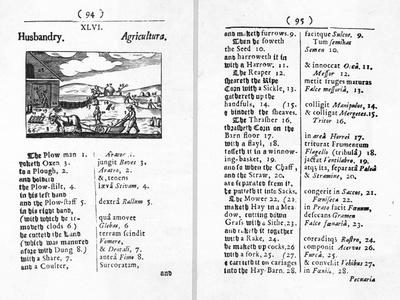 ( 94 )
XLVI.
Husbandry. Agricultura.
The Plow man 1.
yoketh Oxen 3.
to a Plough, 2.
and holdeth
the Plow-stilt, 4.
in his left hand
and the Plow-staff 5.
in his right hand,
(with which he re-
moveth clods 6.)
he cutteth the Land
(which was manured
afore with Dung 8.)
with a Share, 7.
and a Coulter,
Arator 1.
jungit Boves 3.
Aratro, 2.
& tenens
lævâ Stivam, 4.
dextrâ Rallam 5.
quâ amovet
Glebas, 6
terram scindit
Vomere,
& Dentali, 7.
anteà Fimo 8.
Surcoratam,
and
( 95 )
and maketh furrows. 9.
Then he soweth
the Seed 10.
and harroweth it in
with a Harrow, 11.
The Reaper 12.
sheareth the ripe
Corn with a Sickle, 13.
gathereth up the
handfuls, 14. (15.
& bindeth the sheaves.
The Thrasher 16.
thrasheth Corn on the
Barn floor 17.
with a flayl, 18.
tosseth it in a winnow-
ing-basket, 19.
and so when the Chaff,
and the Straw, 20.
are separated from it,
he putteth it into Sacks.
The Mower 22. (21.
maketh Hay in a Mea-
dow, cutting down
Grass with a Sithe, 23.
and raketh it together
with a Rake, 24.
he maketh up cocks, 26
with a fork, 25. (27.
& carrieth it on carriages
into the Hay-Barn. 28.
facitque Sulcos. 9.
Tum seminat
Semen 10.
& innoccat Occâ. 11.
Messor 12.
metit fruges maturas
Falce messoriâ, 13.
colligit Manipulos, 14.
& colligat Mergetes. 15.
Tritor 16.
in areâ Horrei 17.
triturat Frumentum
Flagello (tribulâ) 18.
jactat Ventilabro, 19.
atq; ita, separatâ Paleâ
& Stramine, 20.
congerit in Saccos, 21.
Fœniseca 22.
in Prato facit Fœnum,
desecans Gramen
Falce fœnariâ, 23.
corraditq; Rastro, 24.
componit Acervos 26.
Furcâ, 25.
& convehit Vehibus 27.
in Fœnile. 28.
Pecuaria